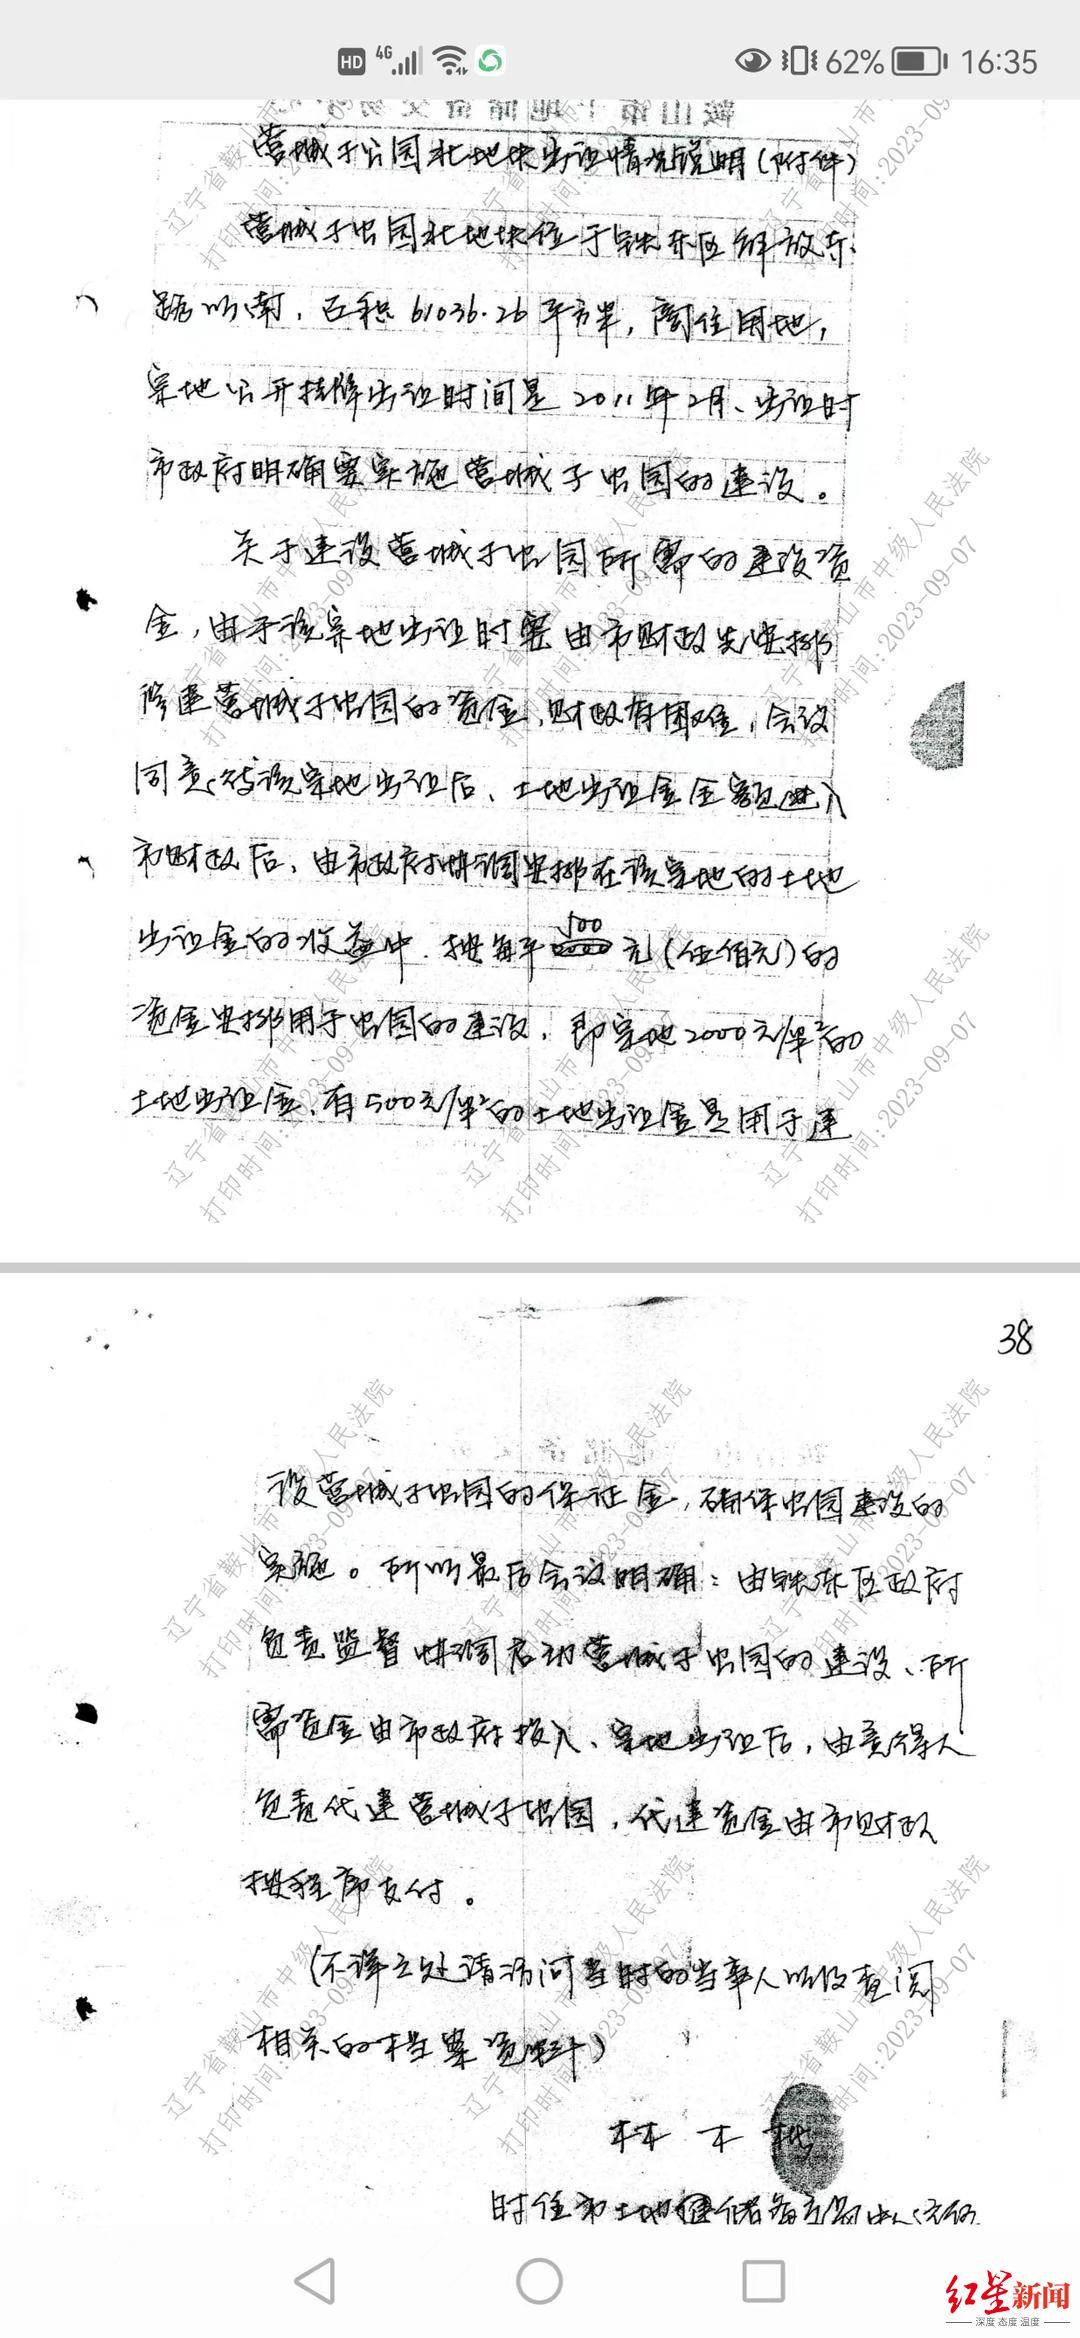 HD 4G 62% 16:35
营城子公园北地块出让情况说明(附件)
营城子公园北地块位于铁东区解放东
路以南，占积61036.26平方米，商住用地，
宗地公开挂牌出让时间是2011年2月、出让时
市政府明确要实施营城子公园的建设。
关于建设营城子公园所需的建设资
金，由于该宗地出让时要由市财政先安排
修建营城子公园的资金，财政有困难，会议
同意：待该宗地出让后、土地出让金全额进入
市财政后、由市政府协调安排在该宗地的土地
出让金的收益中．按每平500元(伍佰元)的
资金安排用于公园的建设．即宗地2000元/米²的
土地出让金、有500元/米²的土地出让金是用于建
38
设营城子公园的保证金，确保公园建设的
实施。所以最后会议明确：由铁东区政府
负责监督协调启动营城子公园的建设、所
需资金由市政府投入、宗地出让后，由竞得人
负责代建营城子公园，代建资金由市财政
按程序支付。
(不详之处请访问当时的当事人以及查阅
相关的档案资料)
林木
时任市土地储备交易中心
辽宁省鞍山市中级人民法院
打印时间:2023-09-07
红星新闻
深度 态度 温度